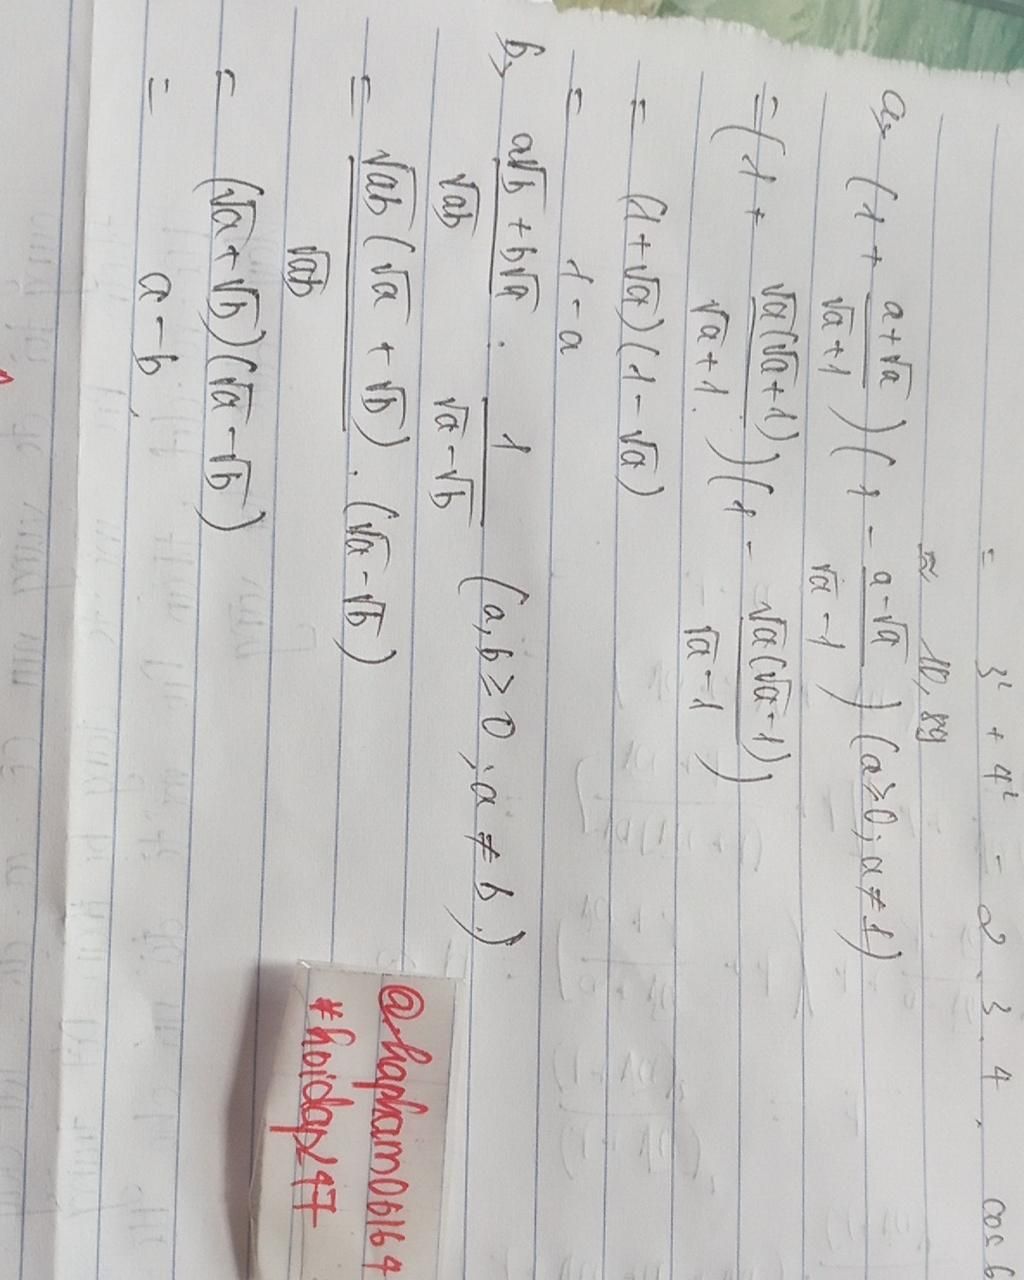 = 3² + 4² - 2 . 3 . 4 . cos 6
≈ 10,89
a, (1 + \frac{a+√a}{√a+1})(1 - \frac{a-√a}{√a-1}) (a≥0; a≠1)
= (1 + \frac{√a(√a+1)}{√a+1})(1 - \frac{√a(√a-1)}{√a-1})
= (1+√a)(1-√a)
= 1-a
b, \frac{a√b + b√a}{√ab} . \frac{1}{√a-√b} (a,b≥0; a≠b.)
= \frac{√ab(√a+√b)}{√ab} . (√a-√b)
= (√a+√b)(√a-√b)
= a-b
@hapham06164
#hoidap247